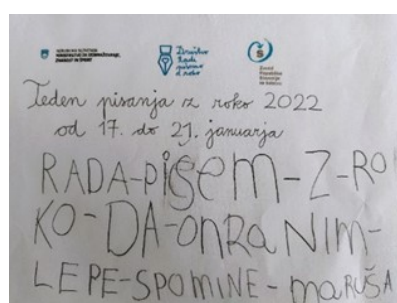 REPUBLIKA SLOVENIJA
MINISTRSTVO ZA IZOBRAŽEVANJE,
ZNANOST IN ŠPORT
Društvo
Radi
pišemo
z roko
Zavod
Republike
Slovenije
za šolstvo
Teden pisanja z roko 2022
od 17. do 21. januarja
RADA-PIŠEM-Z-RO
KO-DA-OHRANIM-
LEPE-SPOMINE-MARUŠA